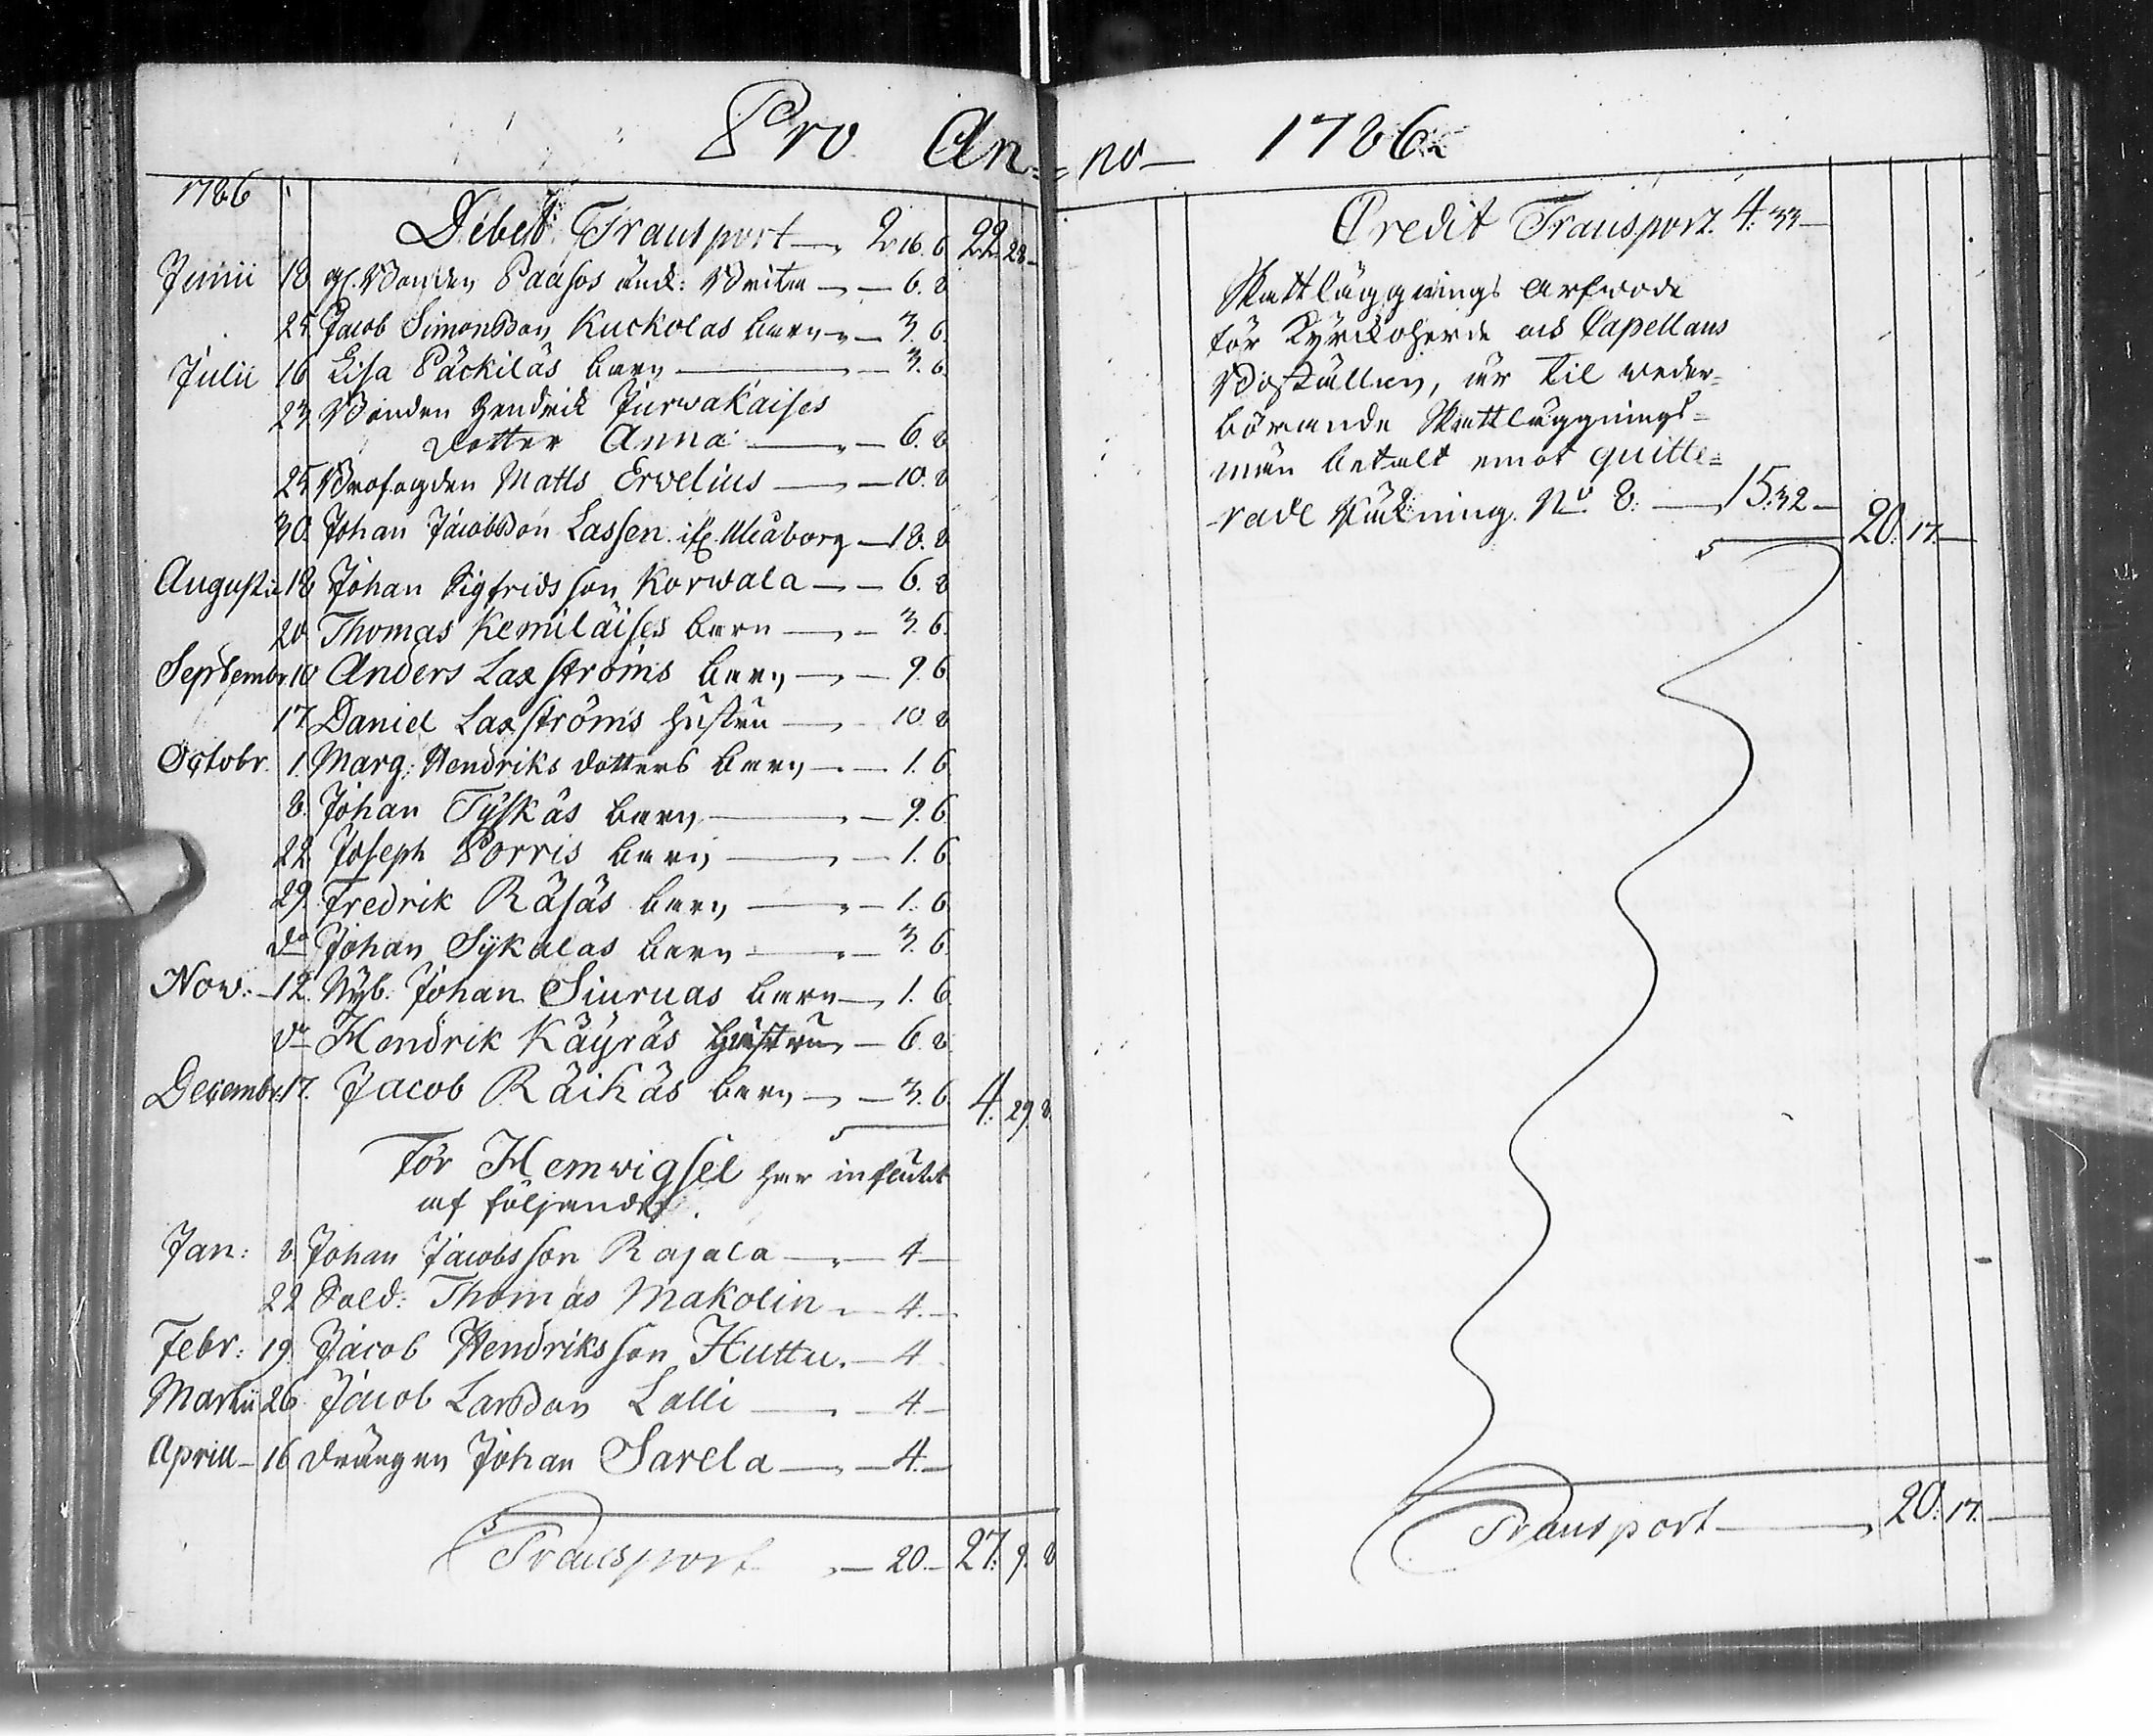 Pro An=
=no 1786
1786
Debet Transport 2. 16. 6 22. 28.
Junii 18 gl. Bonden Paasos änck: Brita 6. 8
25 Jacob Simonsson Kuckolas barn 3. 6.
Julii 16 Lisa Päckiläs barn 3. 6.
23 Bonden Hendrik Jurwakaises
dotter Anna 6. 8
25 Brofogden Matts Ervelius 10. 8
30. Johan Jacobsson Lassen Uleåborg 18. 8
Augusti 18 Johan Sigfridsson Korwala 6. 8
20 Thomas Kemiläises barn 3. 6.
Septembr. 10 Anders Laxströms barn 9. 6
17 Daniel Laxströms hustru 10. 8
Octobr. 1. Marg: Hendriks dotters barn 1. 6
8. Johan Tyskäs barn 9. 6.
22 Joseph Porris barn 1. 6
29 Fredrik Räsäs barn 1. 6
do Johan Sykalas barn 3. 6.
Now: 12. Nyb: Johan Siuruas barn 1. 6.
do Hendrik Käyräs hustru 6. 8.
Decembr: 17. Jacob Räihäs barn 3. 6. 4. 29. 8.
För Hemwigsel har influtit
af följande.
Jan: 8 Johan Jacobsson Rajala 4
22 Sold: Thomas Makolin 4.
Febr: 19 Jacob Hendriksson Huttu. 4
Martii 26 Jacob Larsson Lalli 4
Aprill 16 drängen Johan Sarela 4.
Transport 20. 27. 9. 8
Credit Transport. 4. 33
Skattläggnings arfwode
för Kyrckoherde och Capellans
Boställen, är til weder=
börande Skattläggnings=
män betalt emot quitte=
rade Räckning No. 8. 15. 32 20. 17.
Transport 20. 17.